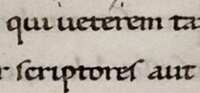 qui ueterem ta
r scriptores aut